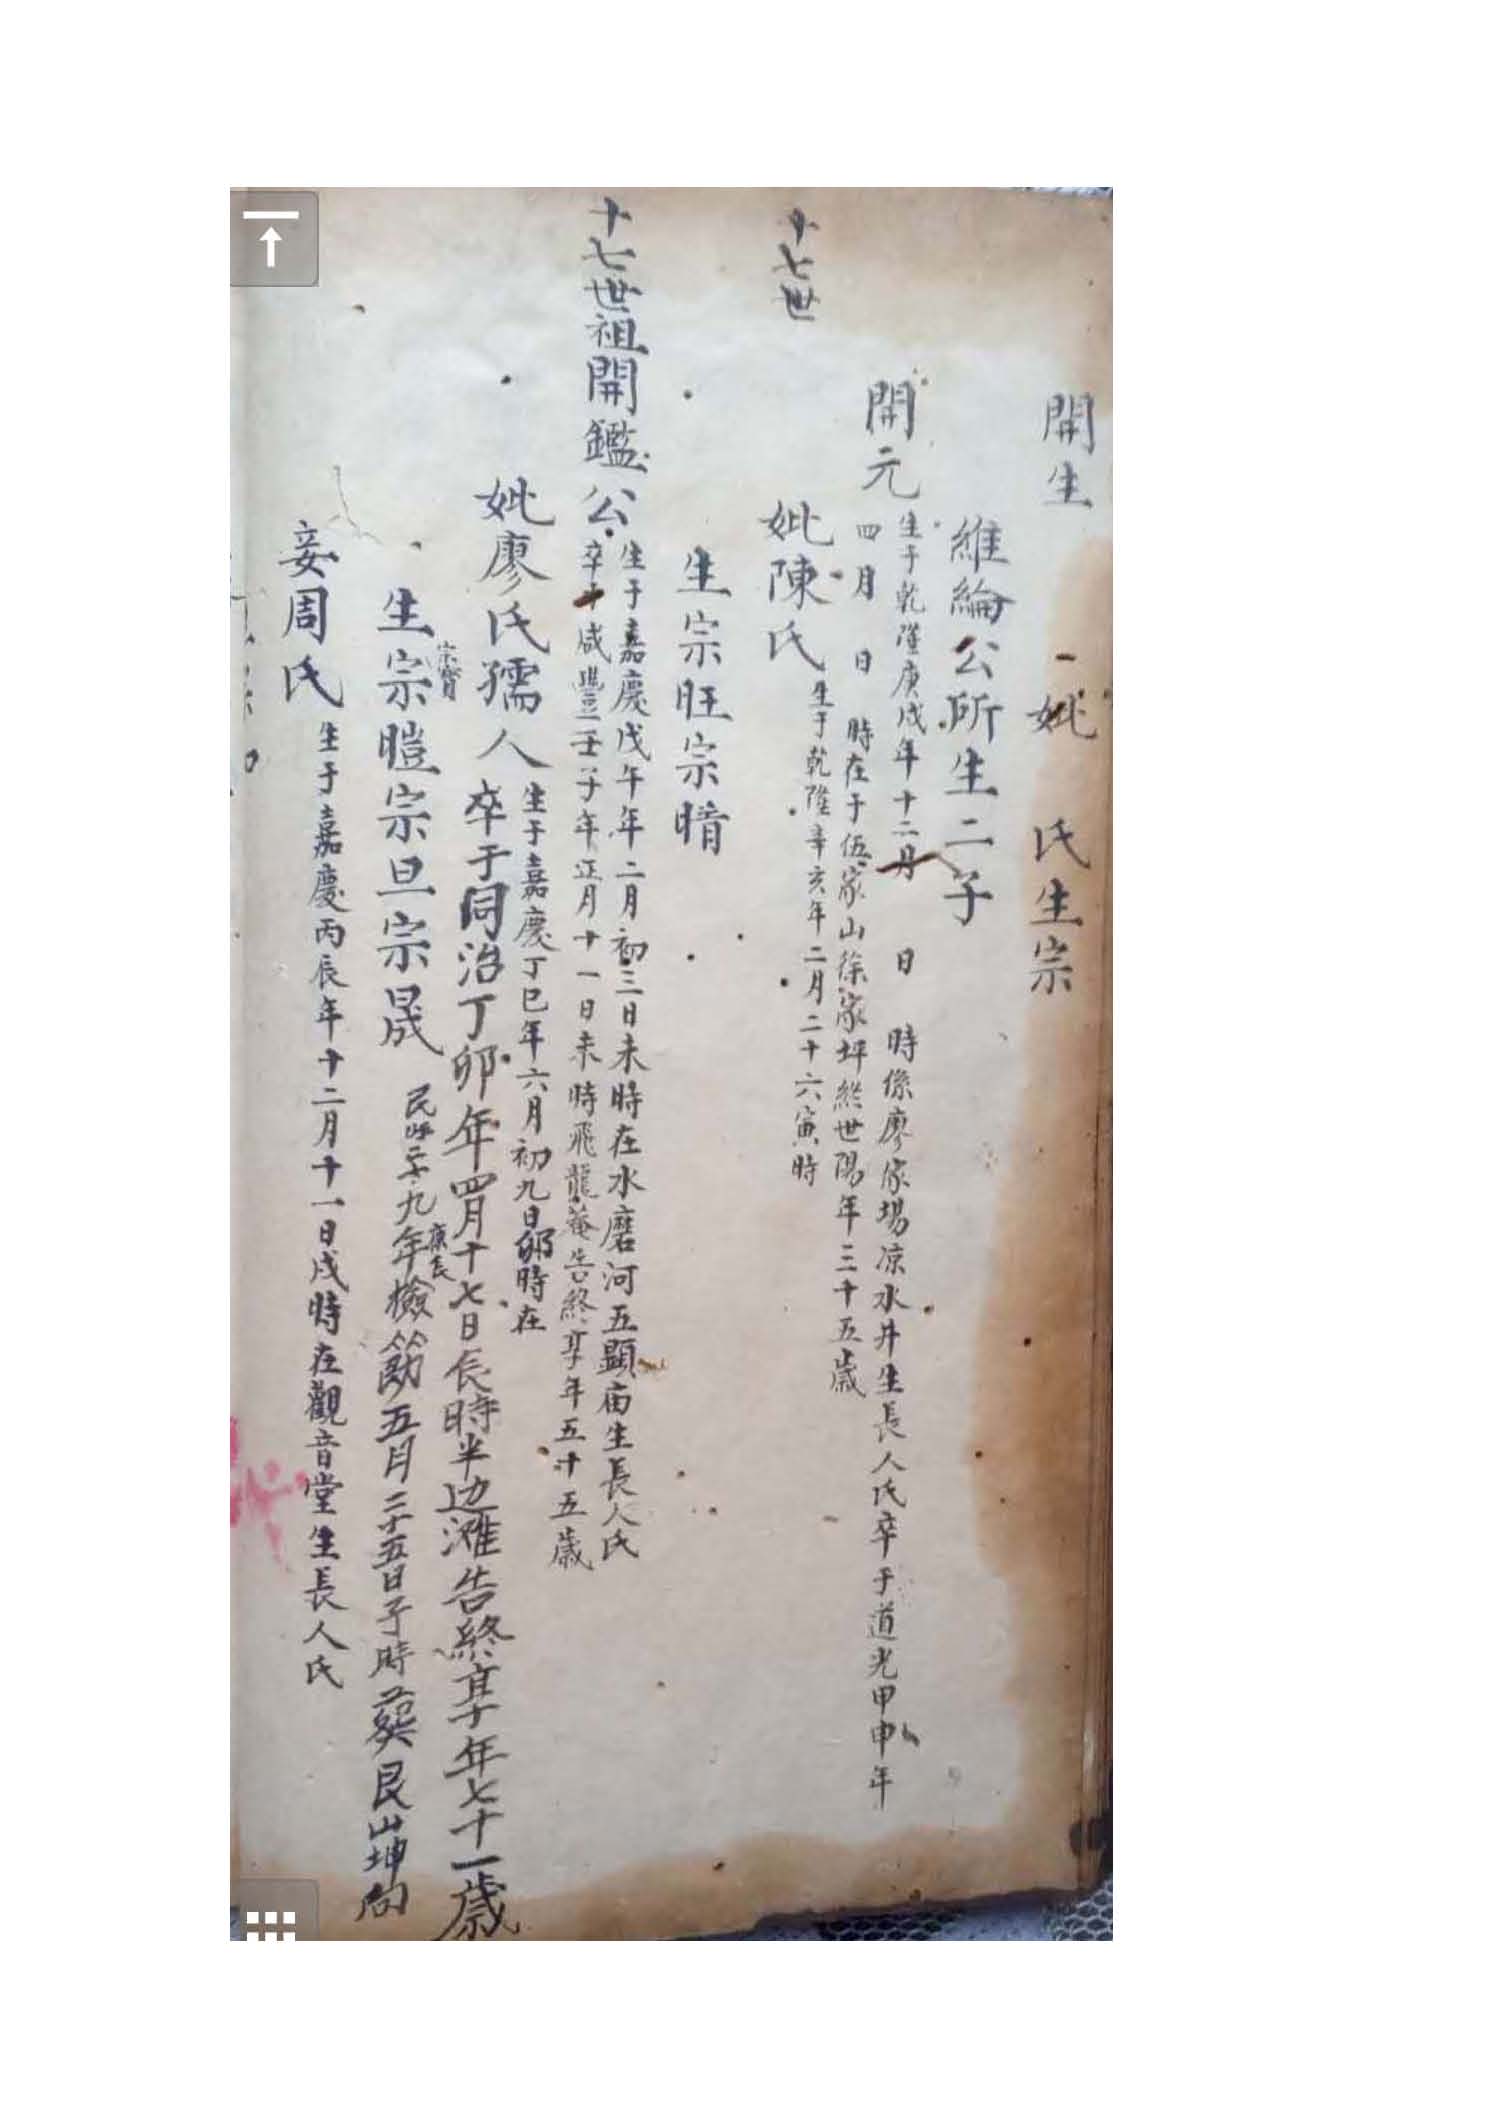 開生 妣 氏生宗
維綸公所生二子
開元
生于乾隆庚戌年十二月 日 時係廖家場凉水井生長人氏卒于道光甲申年
四月 日 時在于伍家山徐家坪終世陽年三十五歲
十七世
妣陳氏 生于乾隆辛亥年二月二十六寅時
生宗旺宗暗
十七世祖開鑑公
生于嘉慶戊午年二月初三日未時在水磨河五顯庙生長人氏
卒于咸豐壬子年正月十一日未時飛龍菴告終享年五十五歲
妣廖氏孺人
生于嘉慶丁巳年六月初九日卯時在
卒于同治丁卯年四月十七日辰時半边灘告終享年七十一歲
宗寳
生宗暟宗旦宗晟
民国二十九年庚辰檢筋五月二十五日子時葵艮山坤向
妾周氏 生于嘉慶丙辰年十二月十一日戌時在觀音堂生長人氏